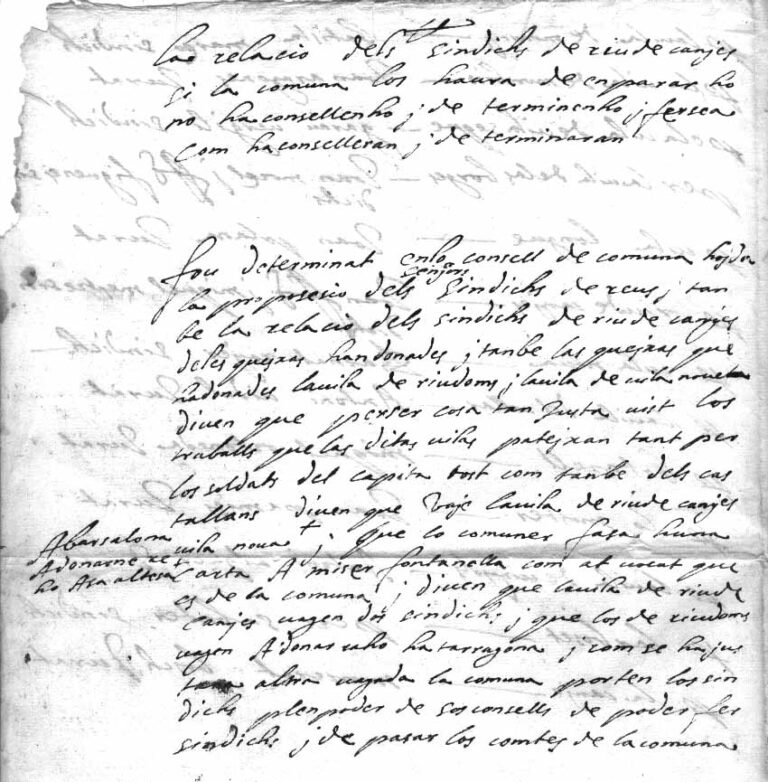 la relacio dels sindichs de riudecanjes
si la comuna los haura de enparar ho
no ha consellenho j de terminenho j fersea
com ha conselleran j de terminaran
fou determinat en lo consell de comuna hojda
la proposesio dels senjors sindichs de reus j tan
be la relacio dels sindichs de riudecanjes
deles queixas han donades j tanbe las queixas que
ha donades lavila de riudoms j lavila de vila noveta
diuen que perser cosa tan justa vist los
traballs que las ditas vilas pateixan tant per
los soldats del capita tost com tanbe dels cas
tallans diuen que vaje lavila de riude canjes
vila nova + j que lo comuner fasa huna
A barsalona
Adonarne
ho Asa altesa
carta A miser fontanella com at vocat que
es de la comuna j diuen que lavila de riude
canjes vagen dos sindichs j que los de riudoms
vagen Adonar raho ha tarragona j com se hajus
tara altra vegada la comuna porten los sin
dichs plen poder de sos consells de poder fer
sindichs j de pasar los comtes de la comuna